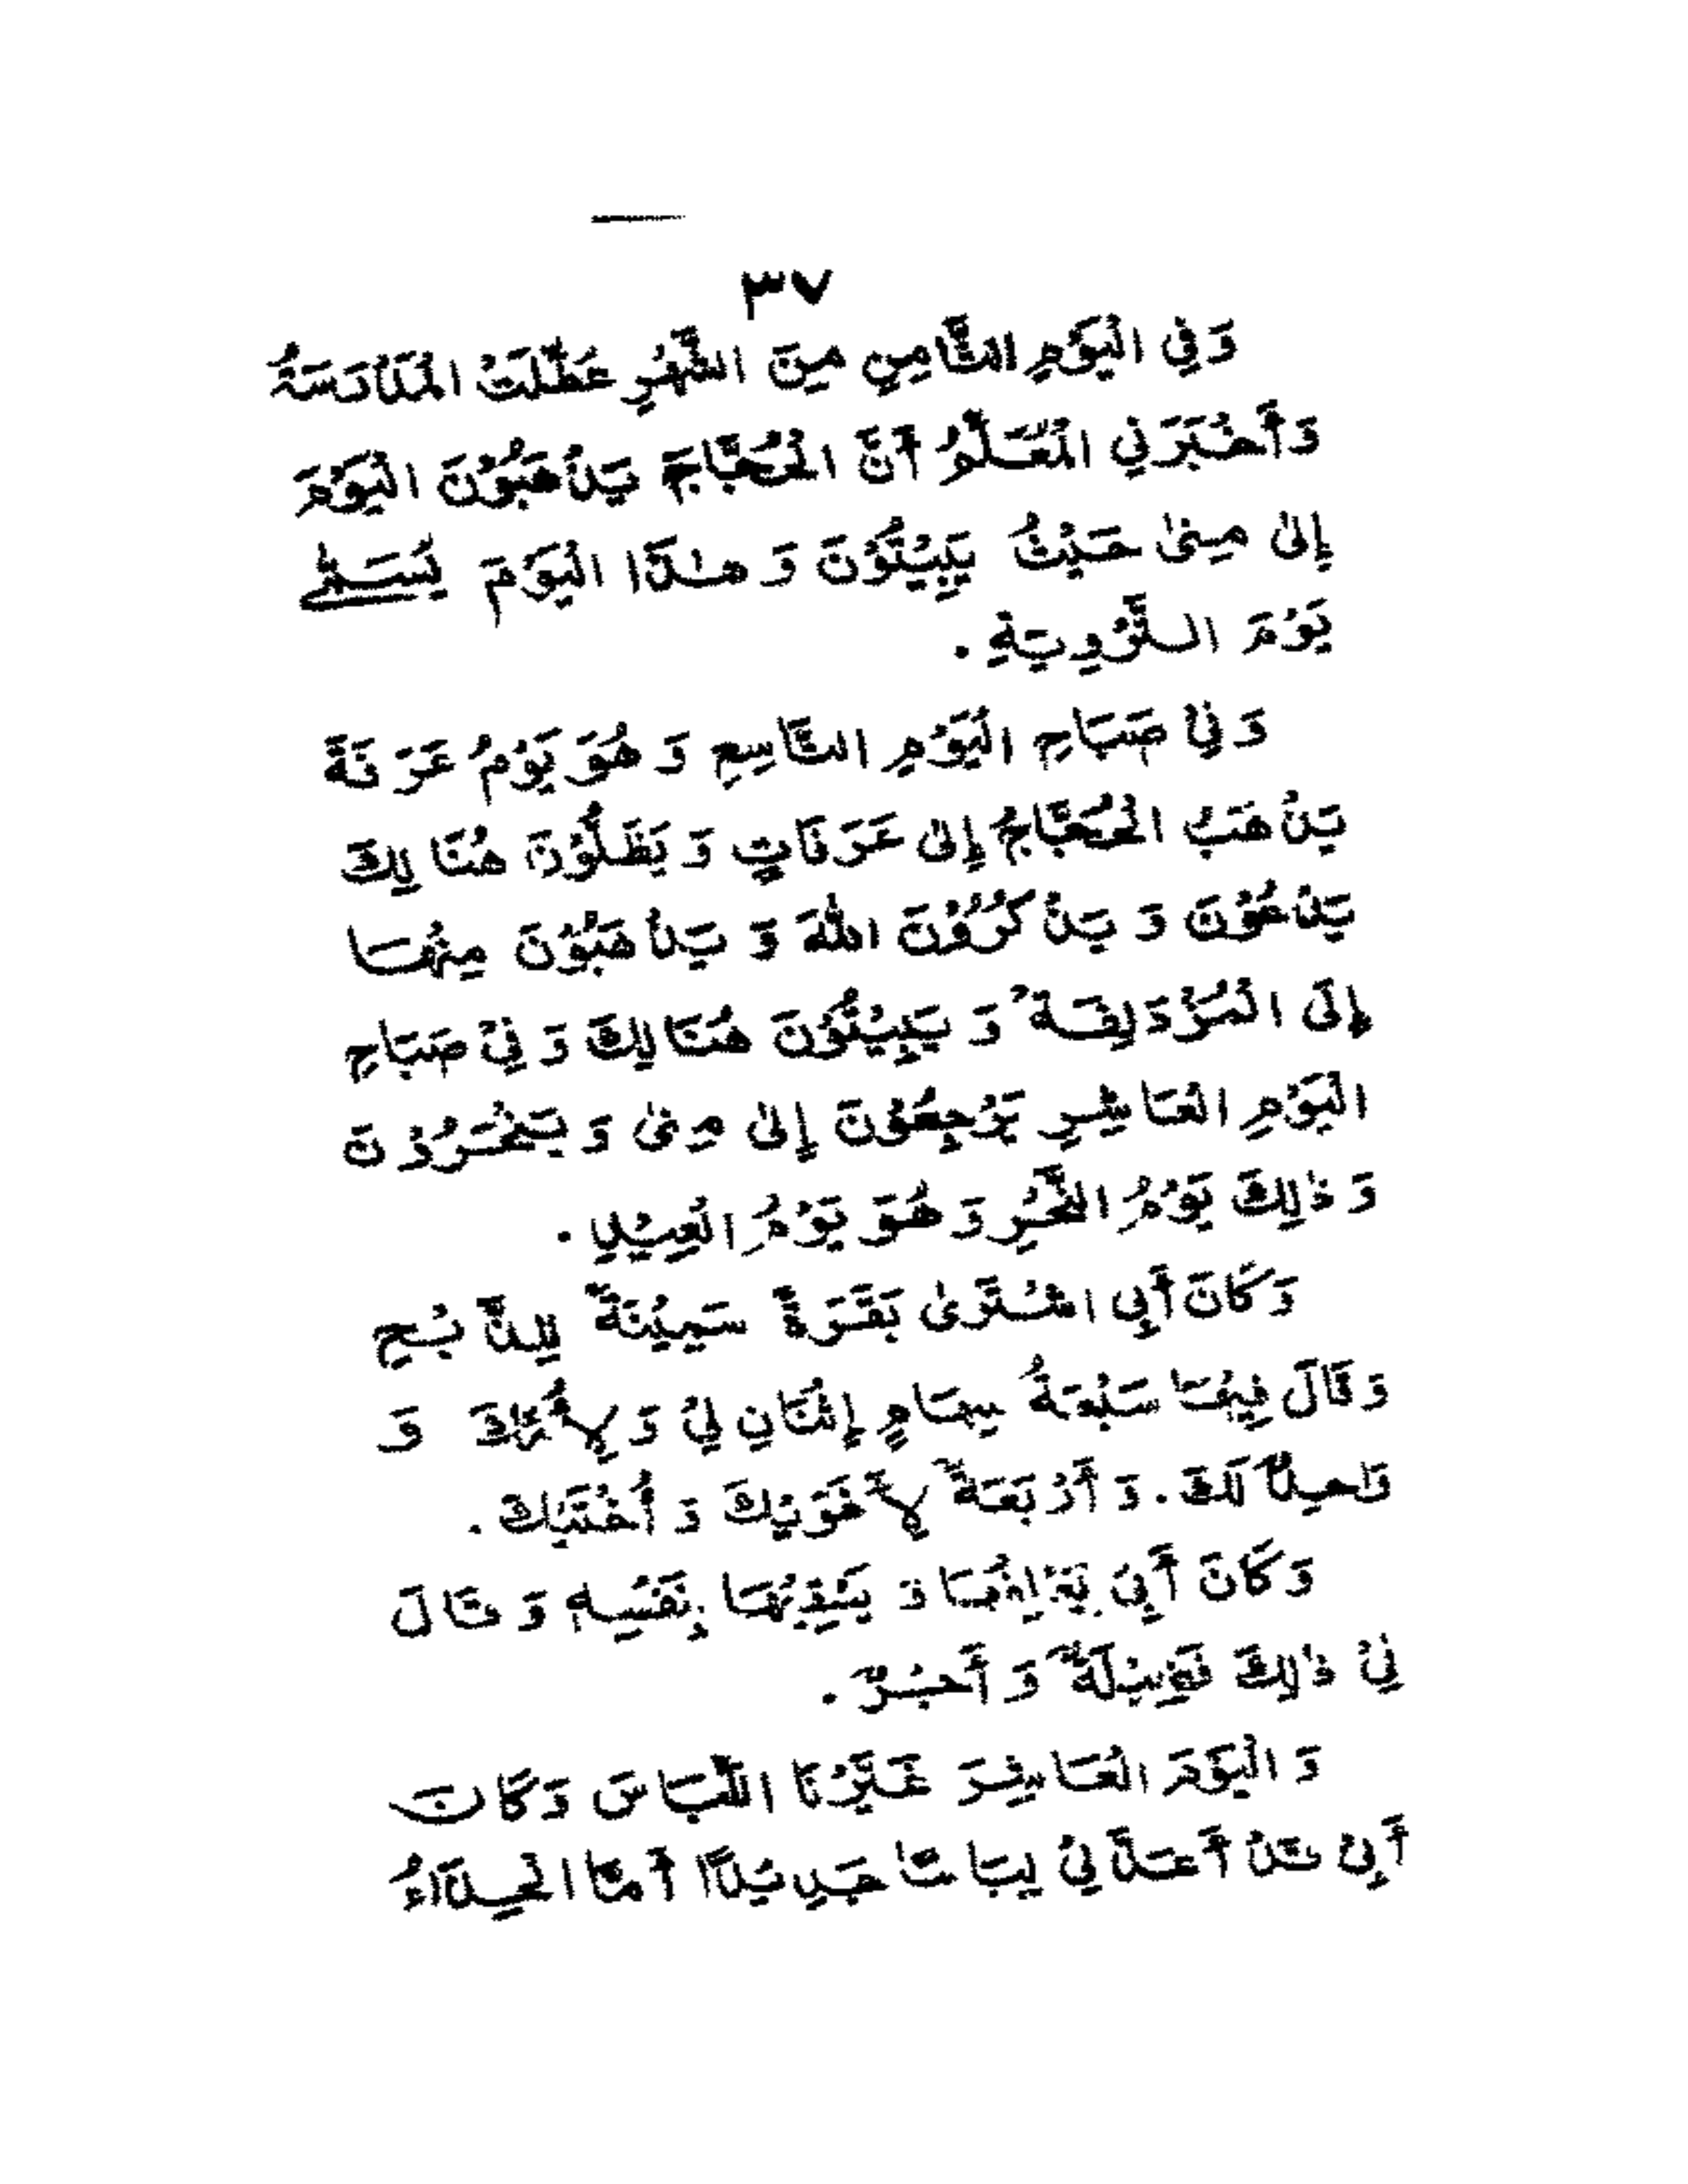 ٣٧
وَفِي الْيَوْمِ الثَّامِنِ مِنَ الشَّهْرِ عَطَّلَتْ الْمَدْرَسَةُ
وَأَخْبَرَنِي الْمُعَلِّمُ أَنَّ الْحُجَّاجَ يَذْهَبُوْنَ الْيَوْمَ
إِلىٰ مِنىٰ حَيْثُ يَبِيْتُوْنَ وَ هٰذَا الْيَوْمَ يُسَمّٰى
يَوْمَ التَّرْوِيَةِ .
وَ فِيْ صَبَاحِ الْيَوْمِ التَّاسِعِ وَ هُوَ يَوْمُ عَرَفَةَ
يَذْهَبُ الْحُجَّاجُ إِلىٰ عَرَفَاتٍ وَ يَظَلُّوْنَ هُنَالِكَ
يَدْعُوْنَ وَ يَذْكُرُوْنَ اللهَ وَ يَذْهَبُوْنَ مِنْهَا
إِلَى الْمُزْدَلِفَةِ وَ يَبِيْتُوْنَ هُنَالِكَ وَ فِيْ صَبَاحِ
الْيَوْمِ الْعَاشِرِ يَرْجِعُوْنَ إِلىٰ مِنىٰ وَ يَنْحَرُوْنَ
وَ ذٰلِكَ يَوْمُ النَّحْرِ وَ هُوَ يَوْمُ الْعِيْدِ .
وَ كَانَ أَبِي اشْتَرىٰ بَقَرَةً سَمِيْنَةً لِلذَّبْحِ
وَ قَالَ فِيْهَا سَبْعَةُ سِهَامٍ إِثْنَانِ لِيْ وَ لِأُمِّكَ وَ
وَاحِدٌ لَكَ . وَ أَرْبَعَةٌ لِأَخَوَيْكَ وَ أُخْتَيْكَ .
وَ كَانَ أَبِيْ يَعْلِفُهَا وَ يَسْقِيْهَا بِنَفْسِهِ وَ قَالَ
فِيْ ذٰلِكَ فَضِيْلَةٌ وَ أَجْرٌ .
وَ الْيَوْمَ الْعَاشِرَ غَيَّرْنَا اللِّبَاسَ وَ كَانَ
أَبِيْ قَدْ أَعَدَّ لِيْ لِبَاسًا جَدِيْدًا أَمَّا الْحِذَاءُ